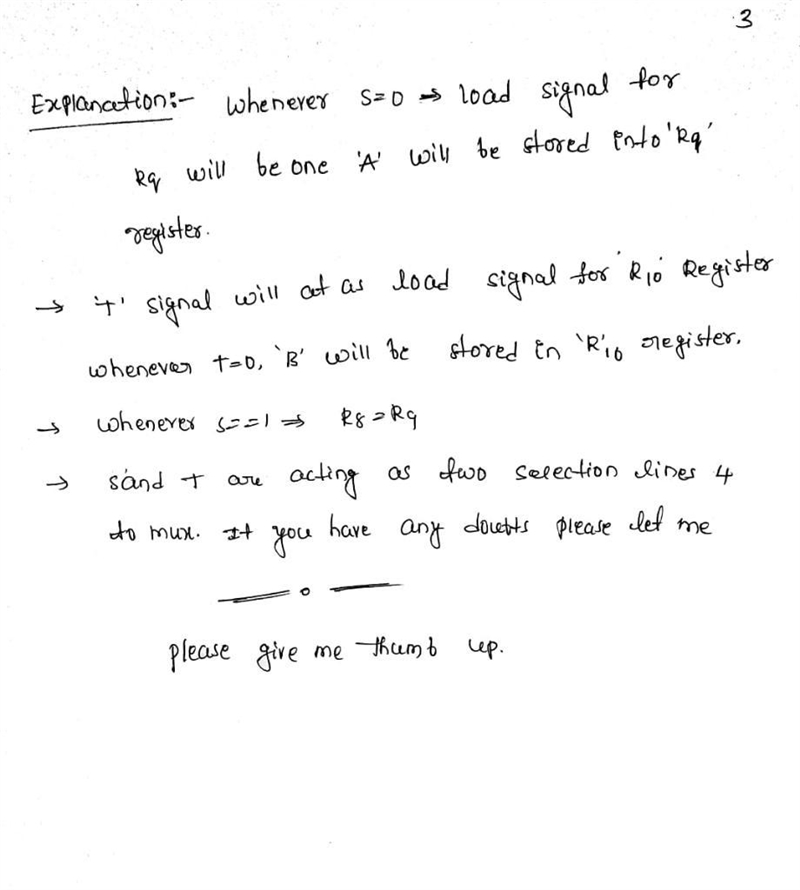 3
Explanation:- Whenever S=0 ⇒ load signal for
R9 will be one 'A' will be stored into 'R9'
register.
→ 'T' signal will act as load signal for 'R10' Register
whenever T=0, 'B' will be stored in 'R'10 register.
→ Whenever S==1 ⇒ R8=R9
→ s'and T are acting as two selection lines 4
to mux. If you have any doubts please let me
═ o ═
please give me thumb up.